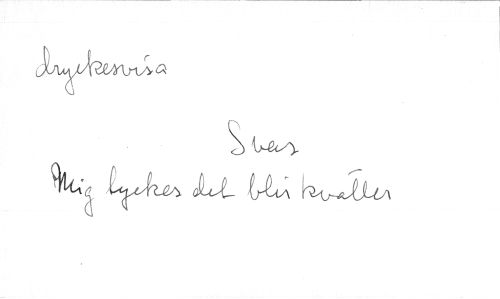 dryckesvisa
Svas
Mig tyckes det blir kvaller